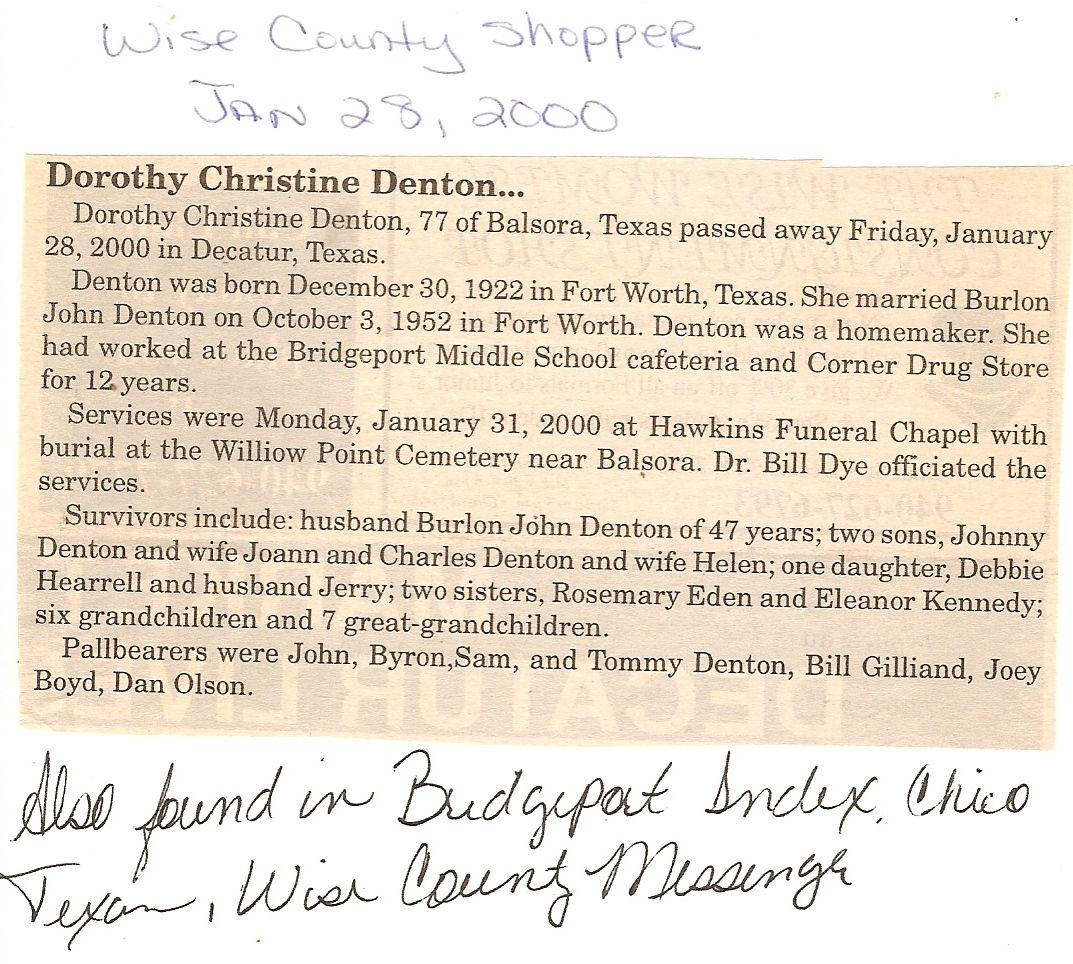 Wise County Shopper
Jan 28, 2000
Dorothy Christine Denton...
Dorothy Christine Denton, 77 of Balsora, Texas passed away Friday, January
28, 2000 in Decatur, Texas.
Denton was born December 30, 1922 in Fort Worth, Texas. She married Burlon
John Denton on October 3, 1952 in Fort Worth. Denton was a homemaker. She
had worked at the Bridgeport Middle School cafeteria and Corner Drug Store
for 12 years.
Services were Monday, January 31, 2000 at Hawkins Funeral Chapel with
burial at the Williow Point Cemetery near Balsora. Dr. Bill Dye officiated the
services.
Survivors include: husband Burlon John Denton of 47 years; two sons, Johnny
Denton and wife Joann and Charles Denton and wife Helen; one daughter, Debbie
Hearrell and husband Jerry; two sisters, Rosemary Eden and Eleanor Kennedy;
six grandchildren and 7 great-grandchildren.
Pallbearers were John, Byron,Sam, and Tommy Denton, Bill Gilliand, Joey
Boyd, Dan Olson.
Also found in Bridgeport Index, Chico
Texan, Wise County Messenger